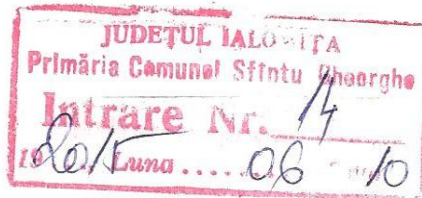 JUDEȚUL IALOMIȚA
Primăria Comunei Sfîntu Gheorghe
Intrare Nr. 14
2015 Luna ..... 06 10